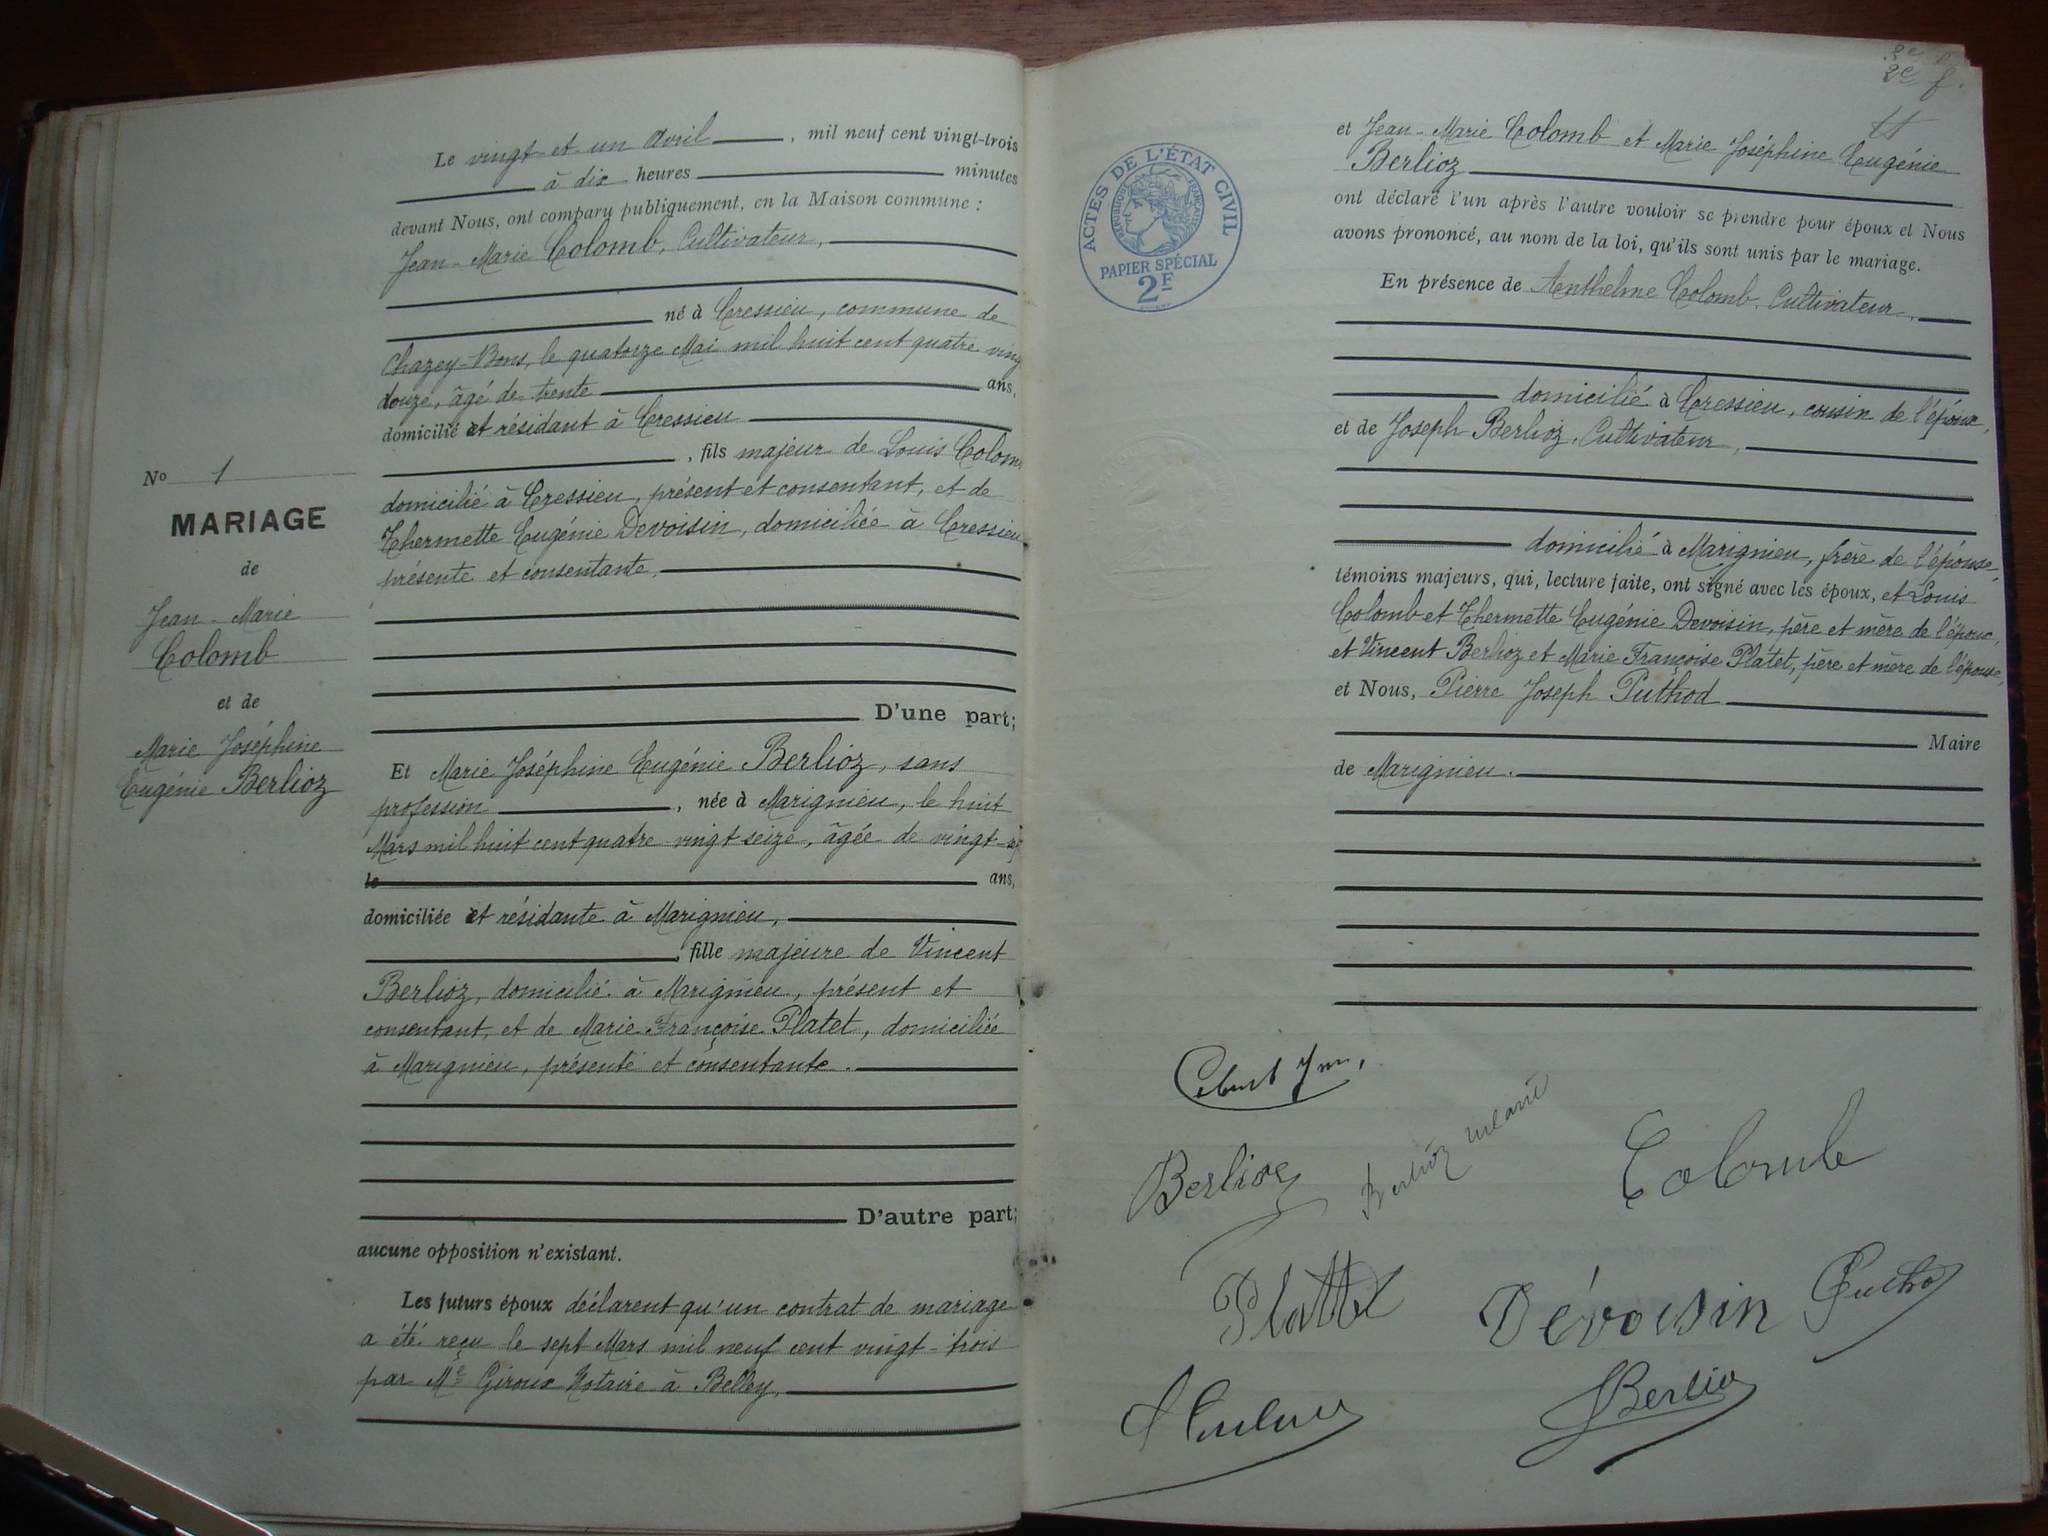 Le vingt et un Avril, mil neuf cent vingt-trois
à dix heures minutes
devant Nous, ont comparu publiquement, en la Maison commune :
Jean-Marie Colomb, Cultivateur,
né à Cressieu, commune de
Chazey-Bons, le quatorze Mai mil huit cent quatre ving
douze, âgé de trente ans,
domicilié et résidant à Cressieu
, fils majeur de Louis Colom
domicilié à Cressieu, présent et consentant, et de
Thermette Eugénie Devoisin, domiciliée à Cressieu
présente et consentante,
No 1
MARIAGE
de
Jean-Marie
Colomb
et de
Marie Joséphine
Eugénie Berlioz
D'une part;
Et Marie Joséphine Eugénie Berlioz, sans
profession, née à Marignieu, le huit
Mars mil huit cent quatre-vingt seize, âgée de vingt-
le ans,
domiciliée et résidante à Marignieu,
, fille majeure de Vincent
Berlioz, domicilié à Marignieu, présent et
consentant, et de Marie Françoise Platet, domiciliée
à Marignieu, présente et consentante.
D'autre part;
aucune opposition n'existant.
Les futurs époux déclarent qu'un contrat de mariage
a été reçu le sept Mars mil neuf cent vingt-trois
par Me Giroux Notaire à Belley,
2e f.
ACTES DE L'ÉTAT CIVIL
RÉPUBLIQUE FRANÇAISE
PAPIER SPÉCIAL
2F
et Jean-Marie Colomb et Marie Joséphine Eugénie
Berlioz
ont déclaré l'un après l'autre vouloir se prendre pour époux et Nous
avons prononcé, au nom de la loi, qu'ils sont unis par le mariage.
En présence de Anthelme Colomb, Cultivateur,
domicilié à Cressieu, cousin de l'époux,
et de Joseph Berlioz, Cultivateur,
domicilié à Marignieu, frère de l'épouse,
témoins majeurs, qui, lecture faite, ont signé avec les époux, et Louis
Colomb et Thermette Eugénie Devoisin, père et mère de l'époux,
et Vincent Berlioz et Marie Françoise Platet, père et mère de l'épouse,
et Nous, Pierre Joseph Puthod
Maire
de Marignieu.
Berlioz
Berlioz
Colomb
Plattet
Dévoisin
Puthod
Berlioz